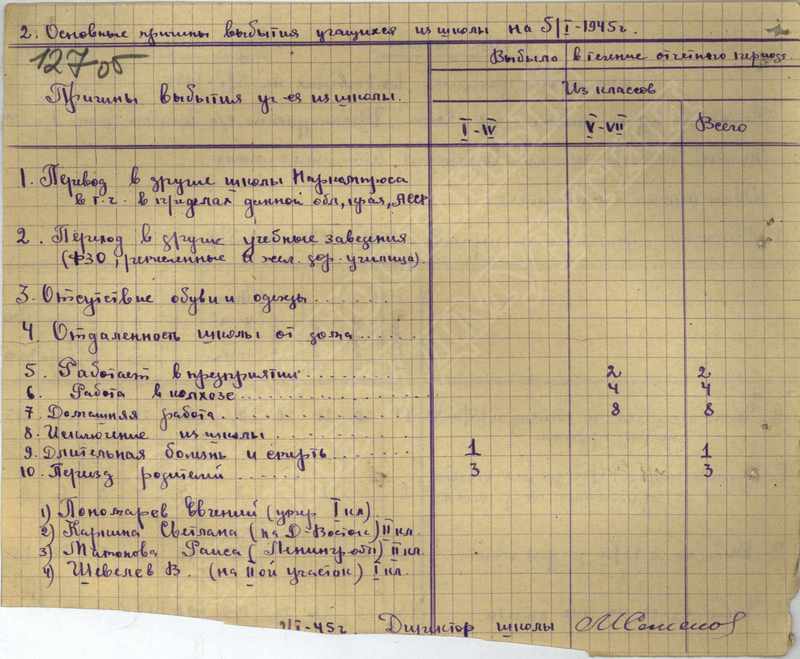 2. Основные причины выбытия учащихся из школы на 5/I-1945г.
127 об
Выбыло в течение отчетного периода
Причины выбытия уч-ся из школы.
Из классов
I-IV V-VII Всего
1. Перевод в другие школы Наркомпроса
в т.ч. в пределах данной обл, края, АССР
2. Переход в другие учебные заведения
(ФЗО, ремесленные и жел. дор. училища).
3. Отсутствие обуви и одежды.......
4. Отдаленность школы от дома.....
5. Работает в предприятии........ 2 2
6. Работа в колхозе......... 4 4
7. Домашняя работа.......... 8 8
8. Исключение из школы.......
9. Длительная болезнь и смерть..... 1 1
10. Переезд родителей......... 3 3
1) Пономарев Евгений (умер I кл)
2) Каршина Светлана (на Д-Восток) II кл.
3) Раиса (Ленингр. обл) II кл.
4) Шевелев В. (на II ой участок) I кл.
/I-45г. Директор школы